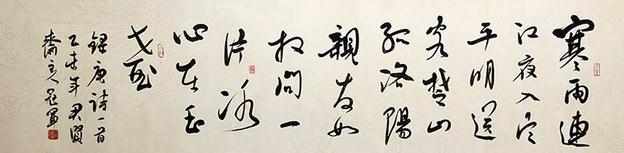 寒雨連
江夜入吴
平明送
客楚山
孤洛陽
親友如
相問一
片冰
心在玉
壶
錄唐詩一首
乙未年君賢
齋主人冠軍